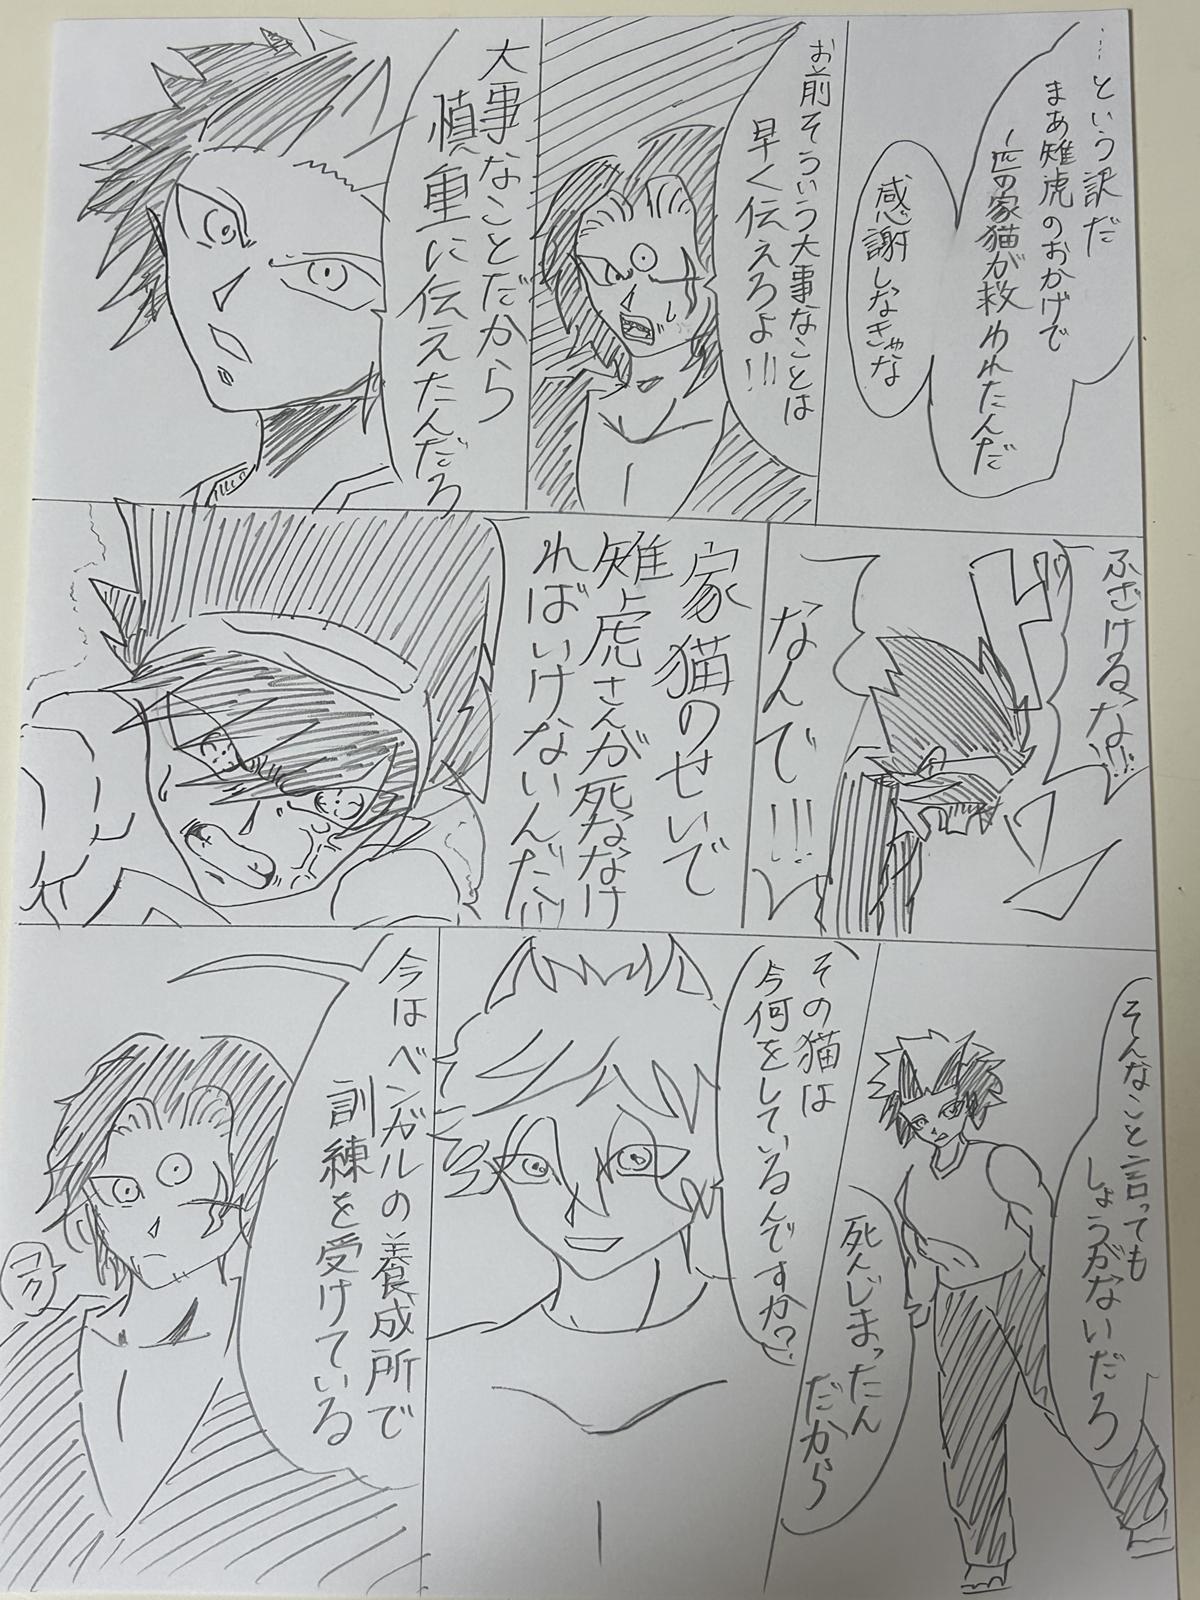 …という訳だ
まあ雉虎のおかげで
一匹の家猫が救われたんだ
感謝しなきゃな
お前そういう大事なことは
早く伝えろよ!!!
大事なことだから
慎重に伝えたんだろ
ふざけるな!!!
ドン
なんで!!!
家猫のせいで
雉虎さんが死ななけ
ればいけないんだ!!!
そんなこと言っても
しょうがないだろ
死んじまったん
だから
その猫は
今何をしているんですか?
今はベンガルの養成所で
訓練を受けている